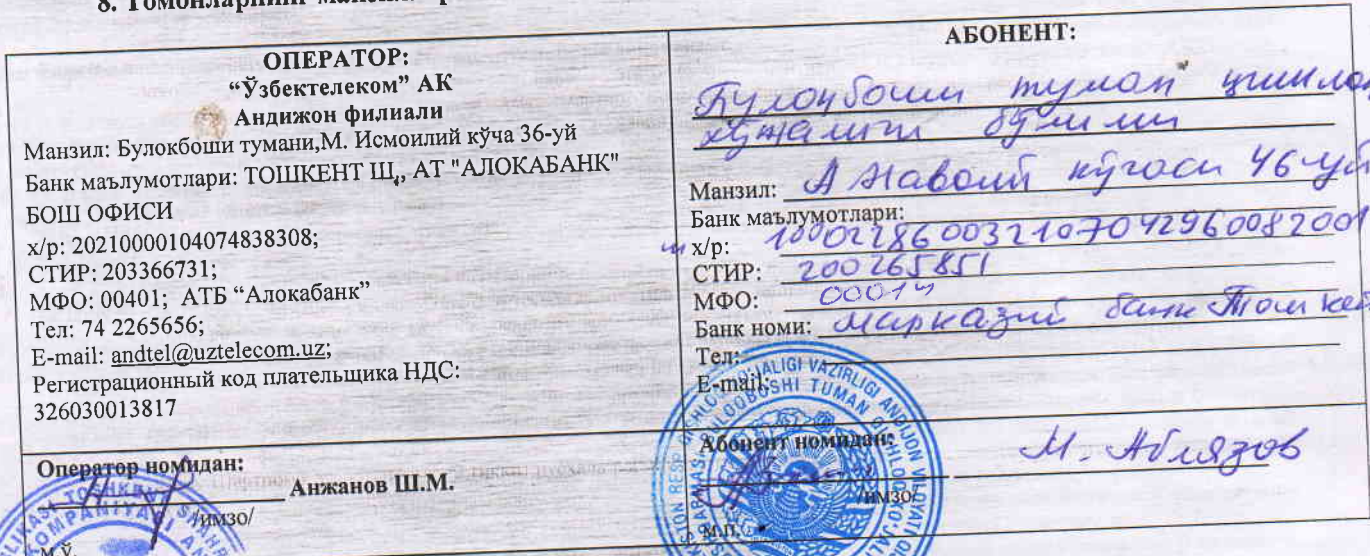 8. Томонларнинг
ОПЕРАТОР:
“Ўзбектелеком” АК
Андижон филиали
Манзил: Булокбоши тумани,М. Исмоилий кўча 36-уй
Банк маълумотлари: ТОШКЕНТ Щ,, АТ "АЛОКАБАНК"
БОШ ОФИСИ
х/р: 20210000104074838308;
СТИР: 203366731;
МФО: 00401; АТБ “Алокабанк”
Тел: 74 2265656;
E-mail: andtel@uztelecom.uz;
Регистрационный код плательщика НДС:
326030013817
Оператор номидан:
Анжанов Ш.М.
/имзо/
М.Ў.
АБОНЕНТ:
Булоқбоши туман қишлоқ
хўжалиги бўлими
Манзил: А Навоий кўчаси 46-уй
Банк маълумотлари:
х/р: 100022860032107042960082001
СТИР: 200265851
МФО: 00014
Банк номи: Марказий банк Тошкент
Тел:
E-mail:
Абонент номидан:
М. Аблязов
/имзо/
М.П.
VAZIRLIGI ANDIJON VILOYATI
TUMAN QISHLOQ
KOMPANIYASI